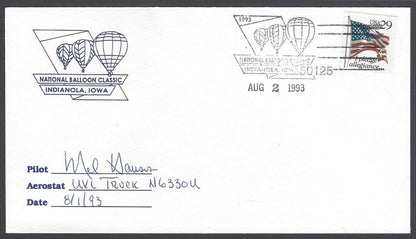 NATIONAL BALLOON CLASSIC
INDIANOLA, IOWA
1993
NATIONAL BALLOON CLASSIC
INDIANOLA, IOWA 50125
AUG 2 1993
USA 29
I pledge
allegiance...
Pilot Mel Hanson
Aerostat UXL Truck N6330U
Date 8/1/93